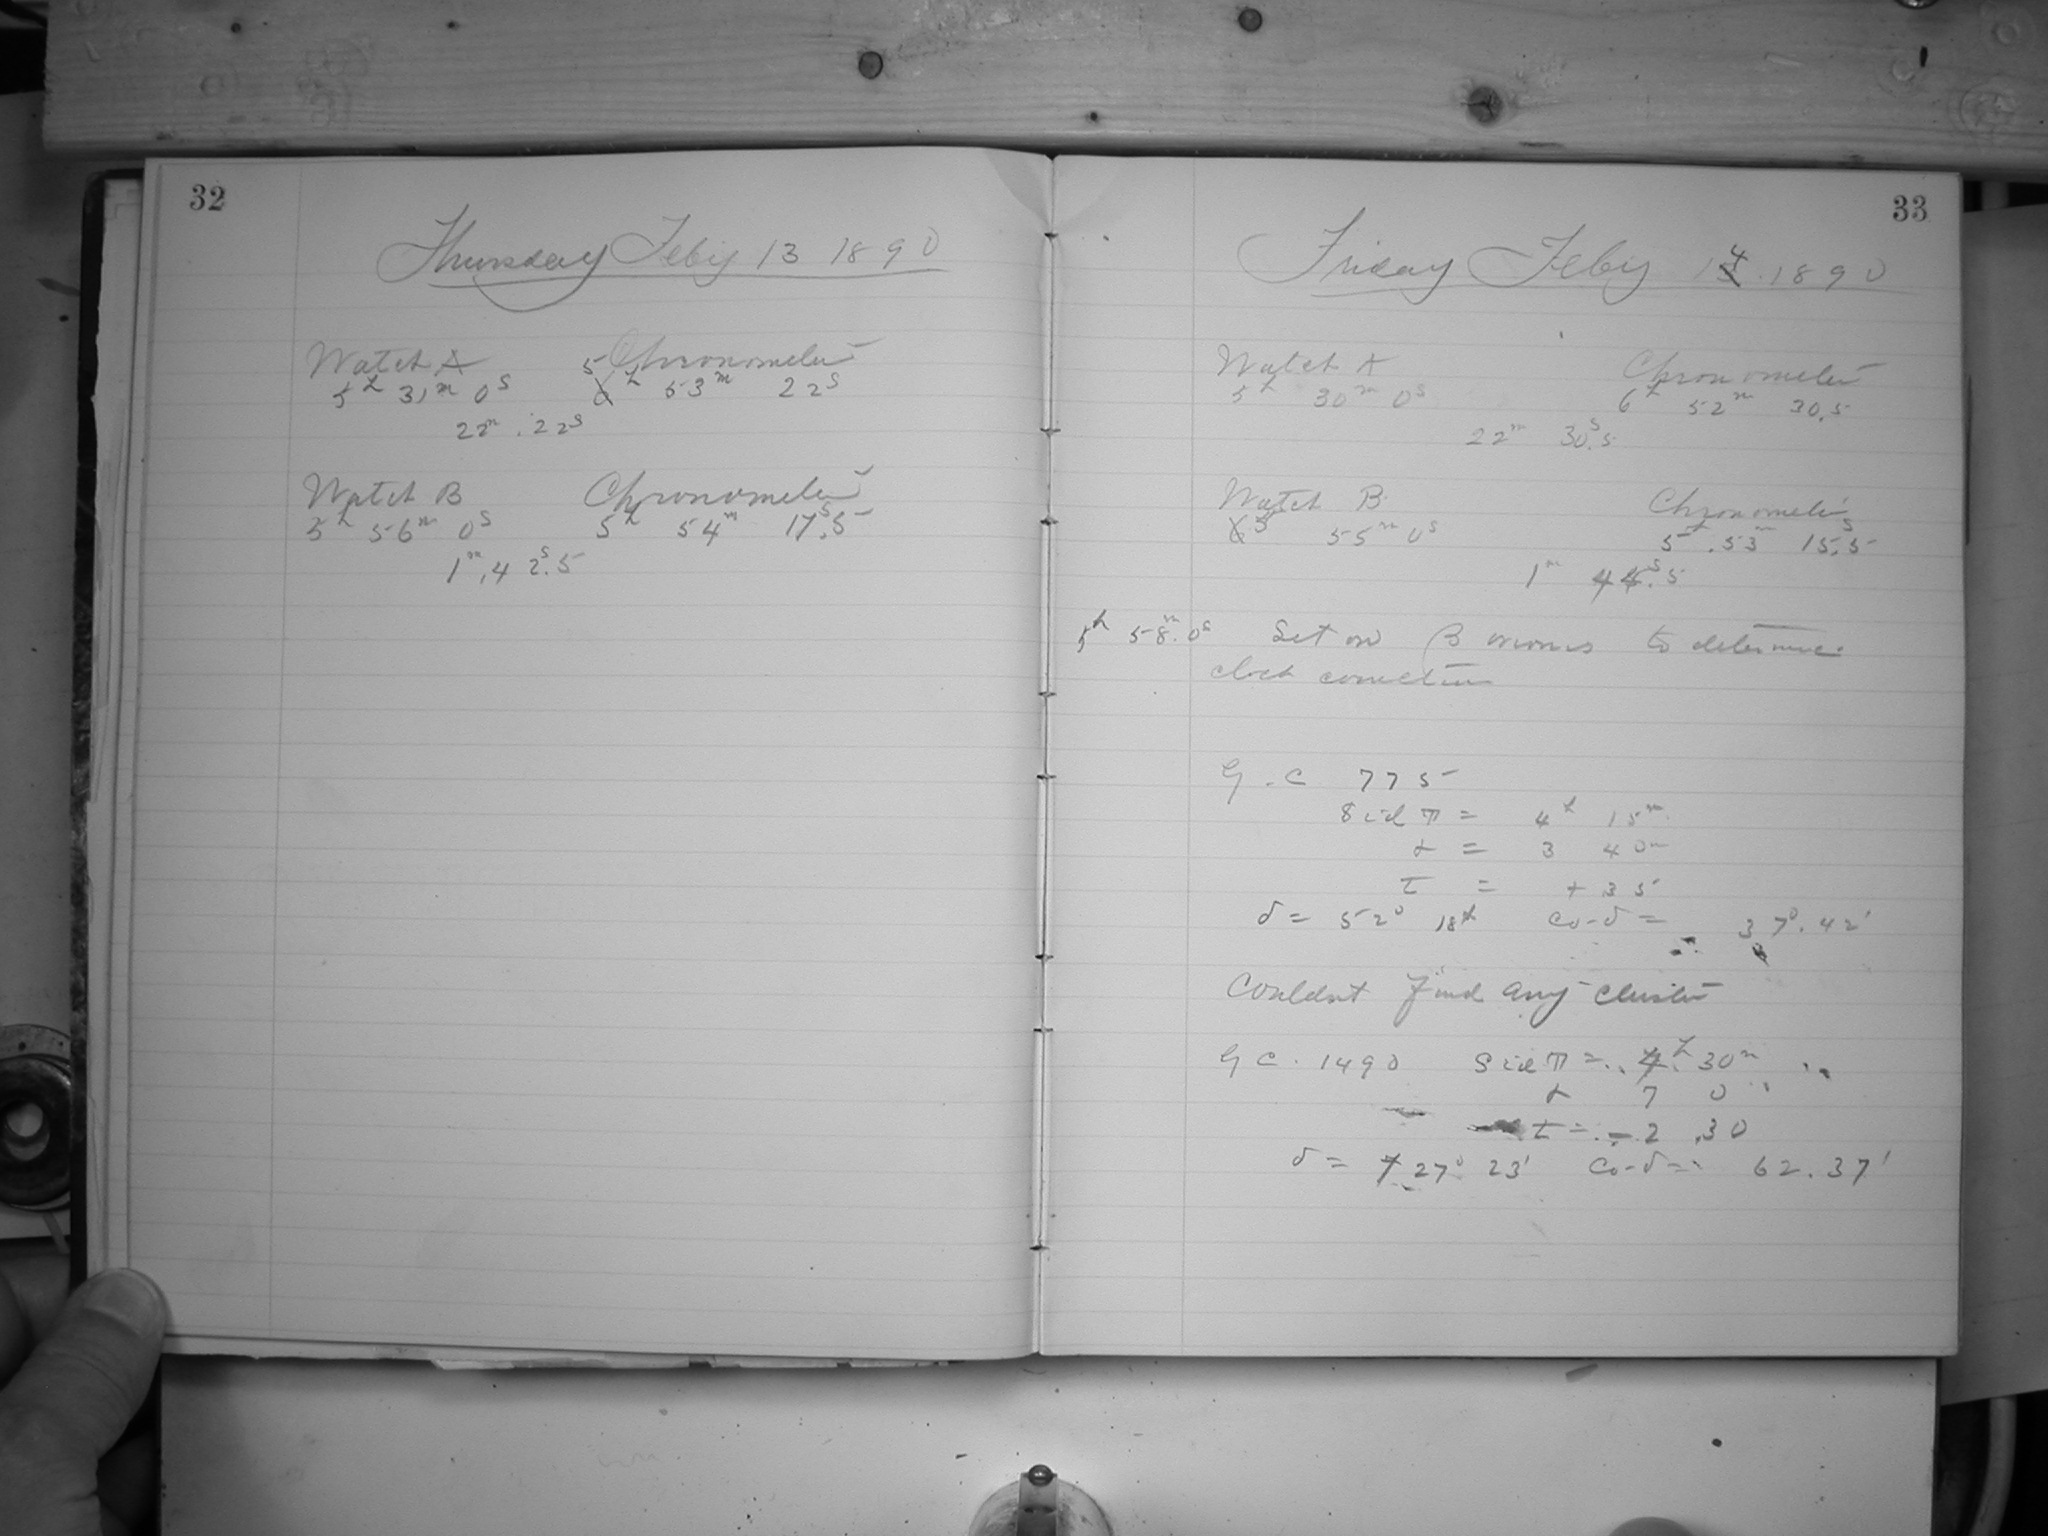 32
Thursday Feby 13 1890
Watch A 5 Chronometer
5h 31m 0s 6h 53m 22s
22m.22s
Watch B Chronometer
5h 56m 0s 5h 54m 17s.5
1m.42s.5
33
Friday Feby 14.1890
Watch A Chronometer
5h 30m 0s 6h 52m 30.5
22m 30s.5
Watch B Chronometer
5 55m 0s 5h.53m 15s.5
1m 44s.5
5h 58m.0s Set on β to determine
clock correction
G.C 775
Sid T = 4h 15m
α = 3 40m
τ = +35
δ = 52° 18' Co-δ = 37°.42'
Couldnt find any cluster
G C. 1490 Sid T = 4h 30m
α 7 0
τ = -2.30
δ = +27° 23' Co-δ = 62.37'